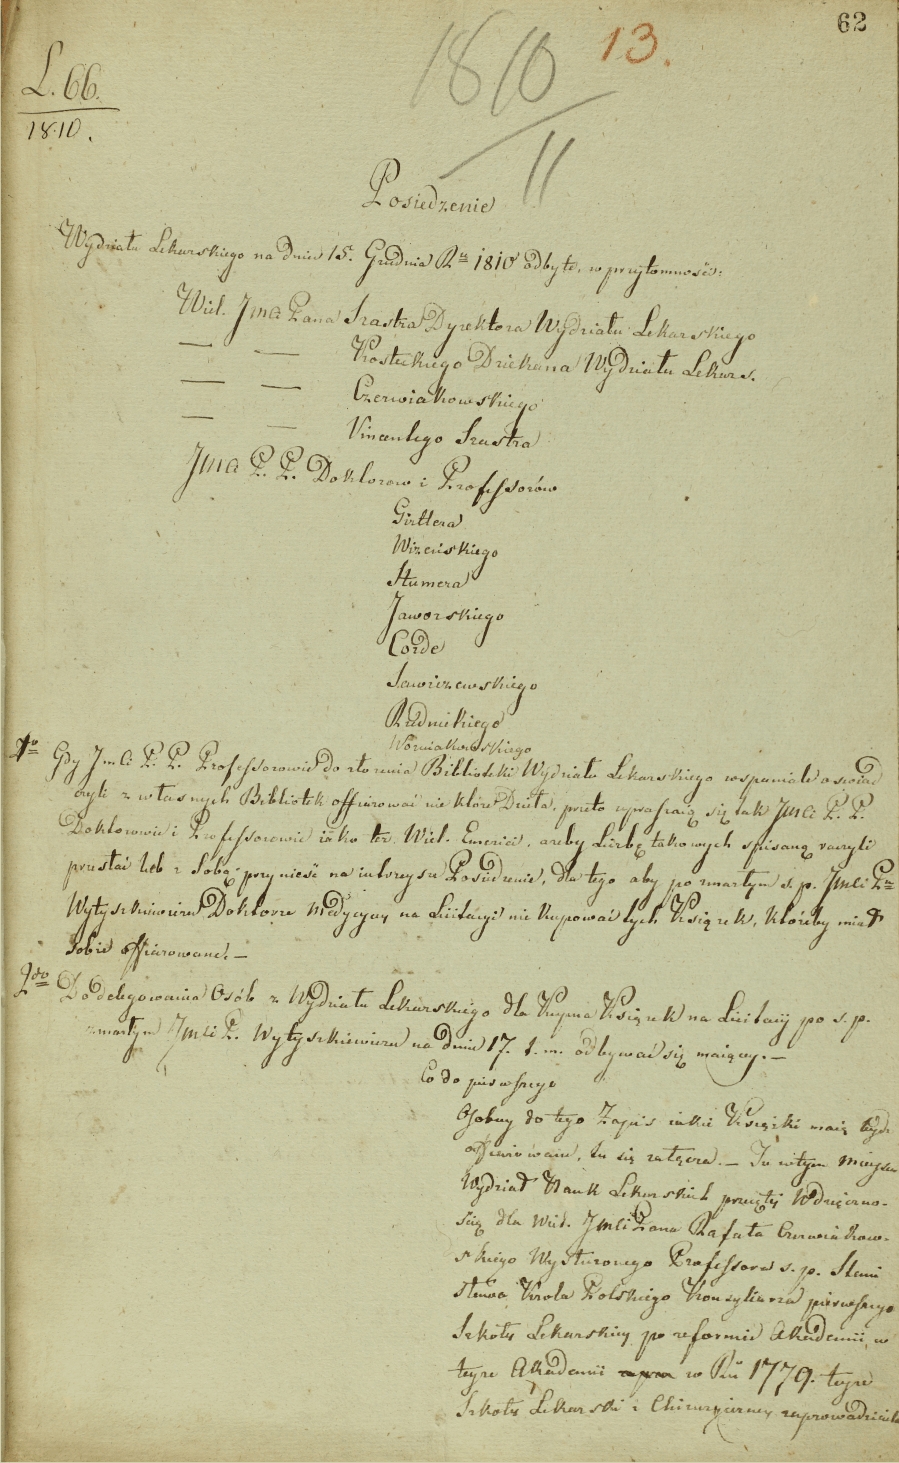 62
1810 13.
11
L. 66.
1810.
Posiedzenie
Wydziału Lekarskiego na dniu 15. Grudnia Ru 1810 odbyte, w przytomności:
Wiel. Jmci Pana Szastra Dyrektora Wydziału Lekarskiego
— — Kosteckiego Dziekana Wydziału Lekars.
— — Czerwiakowskiego
— — Vincentego Szastra
Jmci P. P. Doktorow i Professorów
Girtlera
Wizeńskiego
Stumera
Jaworskiego
Corde
Sawiczewskiego
Rudnickiego
Woźniakowskiego
1o Gdy Jmci P. P. Professorowie do złożenia Biblioteki Wydziału Lekarskiego wspaniale oświad
czyli z własnych Bibliotek offiarować niektóre Dzieła, przeto upraszaią się tak Jmci P. P.
Doktorowie i Professorowie iako też Wiel. Emerici, ażeby Liczbę takowych spisaną raczyli
przesłać lub z Sobą przynieść na intrzejsze Posiedzenie, dla tego aby po zmarłym s. p. Jmci Pu
Wytyszkiewiczu Doktorze Medycyny na Licitacyi nie kupować tych Książek, któreby miał
sobie offiarowane. —
2do Do delegowania Osób z Wydziału Lekarskiego dla Kupna Książek na Licitacij po s. p.
zmarłym Jmci P. Wytyszkiewiczu na dniu 17. t. m. odbywać się maiącey. —
Co do pierwszego
Osobny do tego Zapis iakie Książki maią bydź
offiarowane, tu się załącza. — Tu w tym mieysu
Wydział Nauk Lekarskich przejęty Wdzięczno-
ścią dla Wiel. Jmci Pana Rafała Czerwiakow-
skiego Wysłużonego Professora s. p. Stani
sława Krola Polskiego Konsyliarza pierwszego
Szkoły Lekarskiey po reformie Akademii, w
teyże Akademii w Ru 1779. teyże
Szkoły Lekarski i Chirurgiczney zaprowadziciela